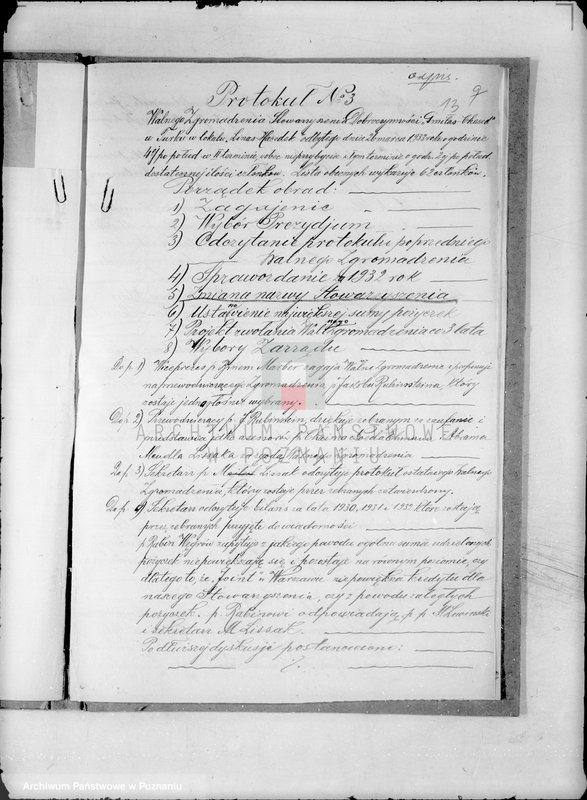 odpis.
13 9
Protokuł No 3
Walnego Zgromadzenia Stowarzyszenia Dobroczynności "Gmilas-Chesed"
w Turku w lokalu odbytego dnia 26 marca 1933 roku o godzinie
4 tej po połud w II terminie, wobec nieprzybycia w I-ym terminie o godz. 2 g po połud
dostatecznej ilości członków. Lista obecnych wykazuje 62 członków.
Porządek obrad:
1) Zagajenie
2) Wybór Prezydjum
3) Odczytanie protokułu poprzedniego
Walnego Zgromadzenia
4) Sprawozdanie za 1932 rok
5) Zmiana nazwy Stowarzyszenia
6) Ustanowienie największej sumy pożyczek
7) Projekt zwołania Walnego Zgromadzenia co 3 lata
8) Wybory Zarządu
Do p. 1) Wiceprezes p. Zagaja Walne Zgromadzenie i proponuje
na przewodniczącego Zgromadzenia p. Jakóba Rubinsteina, który
zostaje jednogłośnie wybrany.
Do p. 2) Przewodniczący p. J. Rubinstein dziękuje zebranym za zaufanie i
przedstawia jako asesorów p. Abrama
Lissaka
Do p. 3) Sekretarz p. M. Lissak odczytuje protokuł ostatniego Walnego
Zgromadzenia, który zostaje przez zebranych zatwierdzony.
Do p. 4) Sekretarz odczytuje bilans za lata 1930, 1931 i 1932 które zostają
przez zebranych przyjęte do wiadomości
p. Rubin Węgrów zapytuje z jakiego powodu ogólna suma udzielonych
pożyczek nie powiększa się i pozostaje na równym poziomie, czy
dlatego to, że "Joint" w Warszawie nie powiększa kredytu dla
naszego Stowarzyszenia, czy z powodu zaległych
pożyczek. p. Rubinowi odpowiadają p. p.
i sekretarz M Lissak.
Po dłuższej dyskusji postanowiono:
./.
ARCHIWUM PAŃSTWOWE
W POZNANIU
Archiwum Państwowe w Poznaniu